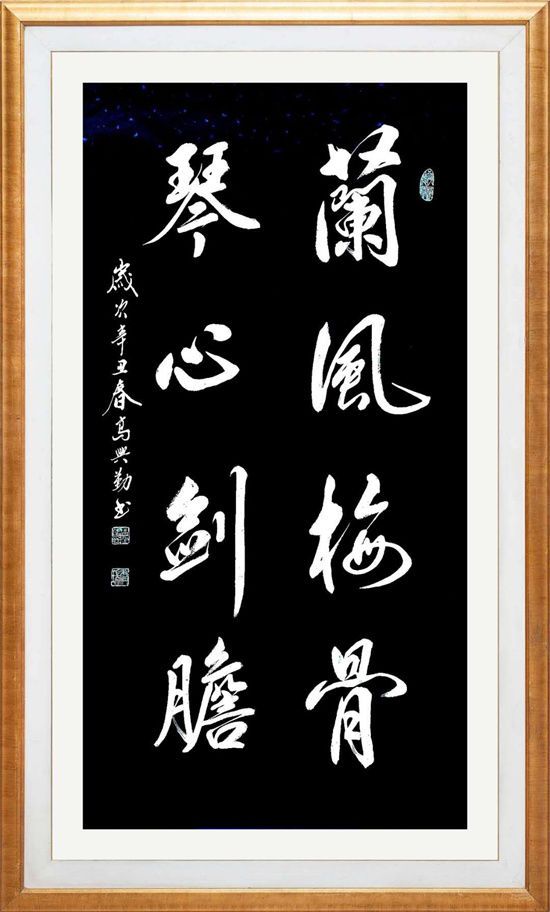 蘭風梅骨
琴心劍膽
歲次辛丑春高興勤書